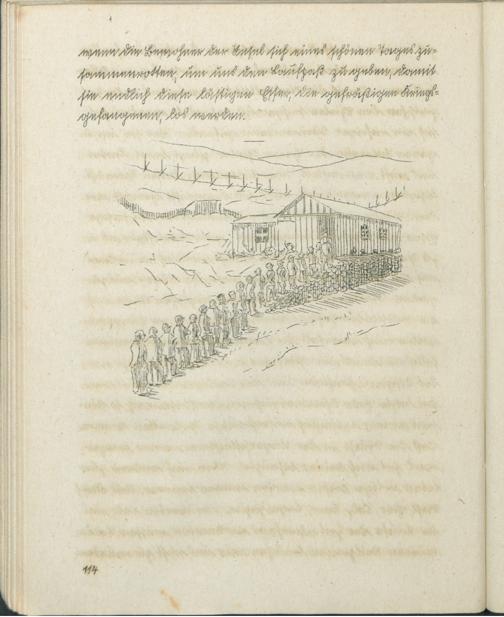 wenn die Bewohner der Insel sich eines schönen Tages zu-
sammenrotten, um uns den Laufpaß zu geben, damit
sie endlich diese lästigen Esser, die gefräßigen Kriegs-
gefangenen, los werden.
114